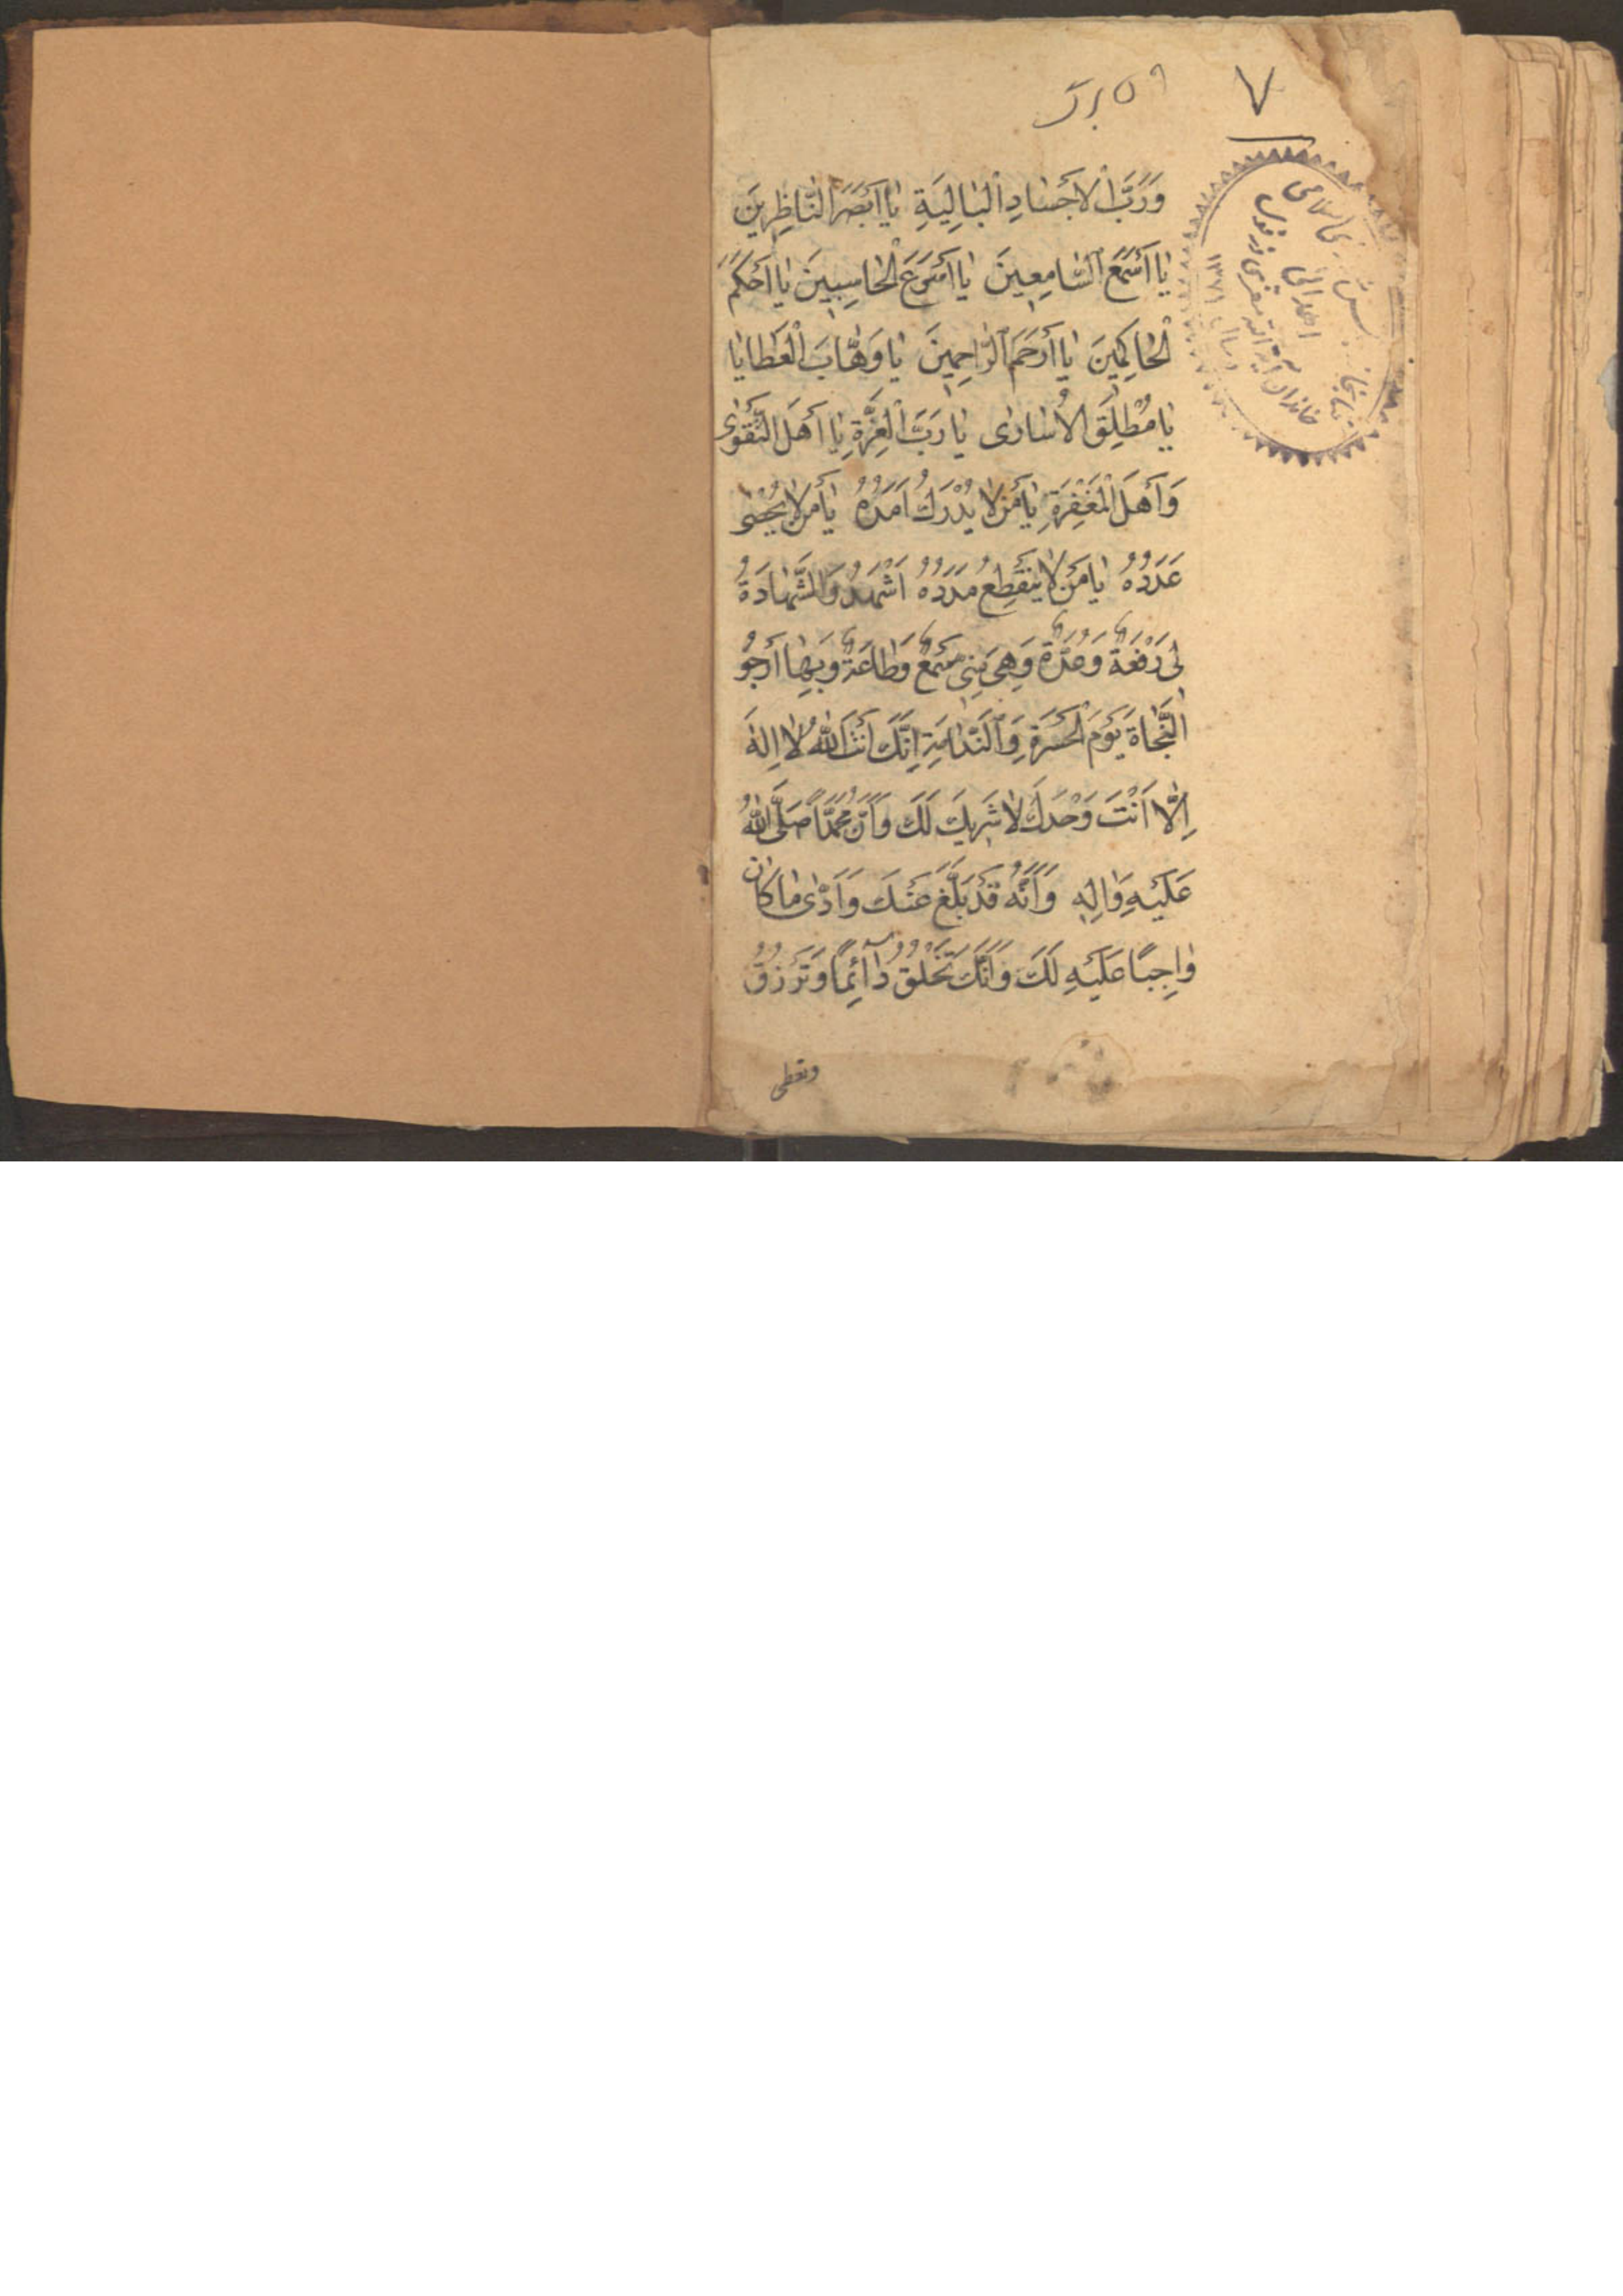 ۷
۵۹ برگ
وَرَبَّ الْاَجْسٰادِ الْبٰالِيَةِ يٰا اَبْصَرَ النّٰاظِرِينَ
يٰا اَسْمَعَ السّٰامِعِينَ يٰا اَسْرَعَ الْحٰاسِبِينَ يٰا اَحْكَمَ
الْحٰاكِمِينَ يٰا اَرْحَمَ الرّٰاحِمِينَ يٰا وَهّٰابَ الْعَطٰايٰا
يٰا مُطْلِقَ الْاُسٰارٰى يٰا رَبَّ الْعِزَّةِ يٰا اَهْلَ التَّقْوٰى
وَاَهْلَ الْمَغْفِرَةِ يٰا مَنْ لٰا يُدْرَكُ اَمَدُهُ يٰا مَنْ لٰا يُحْصٰى
عَدَدُهُ يٰا مَنْ لٰا يَنْقَطِعُ مَدَدُهُ اَشْهَدُ وَالشَّهٰادَةُ
لِى رَفْعَةٌ وَعُدَّةٌ وَهِىَ مِنِّى سَمْعٌ وَطٰاعَةٌ وَبِهٰا اَرْجُو
النَّجٰاةَ يَوْمَ الْحَسْرَةِ وَالنَّدٰامَةِ اِنَّكَ اَنْتَ اللّٰهُ لٰا اِلٰهَ
اِلّٰا اَنْتَ وَحْدَكَ لٰا شَرِيكَ لَكَ وَاَنَّ مُحَمَّدًا صَلَّى اللّٰهُ
عَلَيْهِ وَاٰلِهِ وَاَنَّهُ قَدْ بَلَّغَ عَنْكَ وَاَدّٰى مٰا كٰانَ
وٰاجِبًا عَلَيْهِ لَكَ وَاَنَّكَ تَخْلُقُ دٰآئِمًا وَتَرْزُقُ
وتعطى
اسلامى
اهدائى
خاندان آية الله
۱۳۷۱